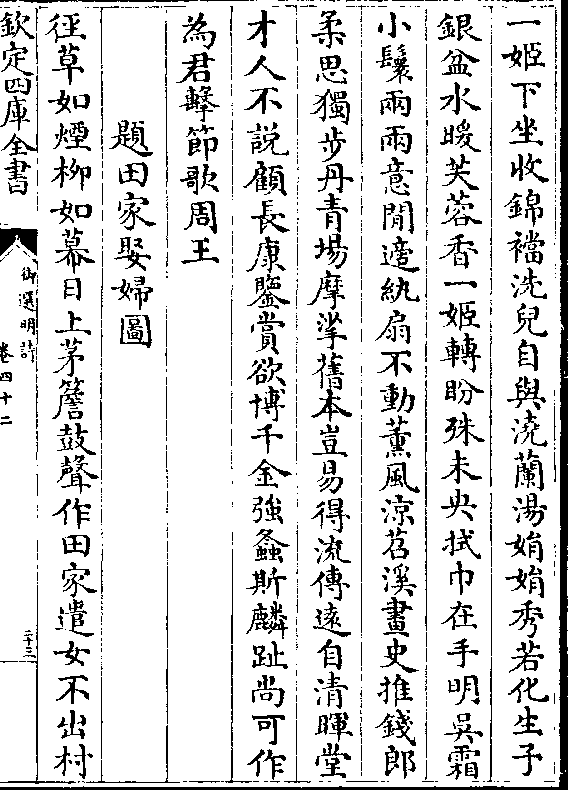 一姬下坐收錦襠洗兒自與澆蘭湯娟娟秀若化生子
銀盆水暖芙蓉香一姬轉盼殊未央拭巾在手明吳霜
小鬟兩兩意閒適紈扇不動薰風涼苕溪畫史推錢郎
柔思獨步丹青場摩挲舊本豈易得流傳遠自清暉堂
才人不說顧長康鑒賞欲博千金強螽斯麟趾尚可作
為君擊節歌周王
題田家娶婦圖
徑草如煙柳如幕日上茅簷鼓聲作田家遣女不出村
欽定四庫全書
御選明詩
卷四十二
二十三